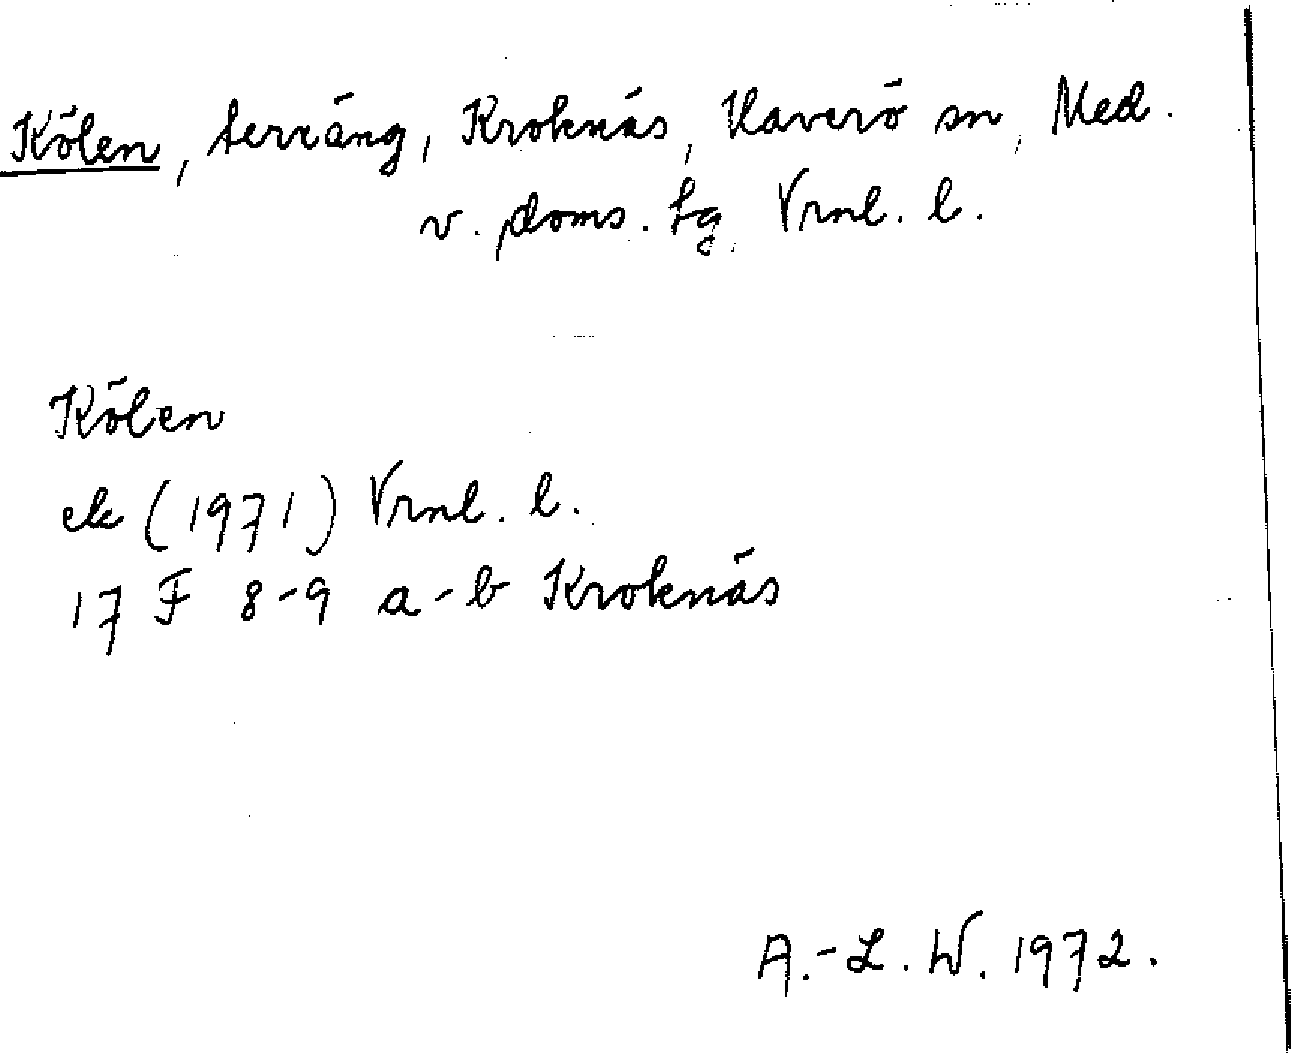 Kölen, terräng, Kroknäs, Haverö sn, Med.
v. doms. tg. Vrnl. l.
Kölen
ek (1971) Vrnl. l.
17 F 8-9 a-b Kroknäs
A.-L. W. 1972.